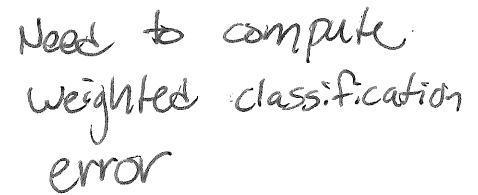 Need to compute
weighted classification
error